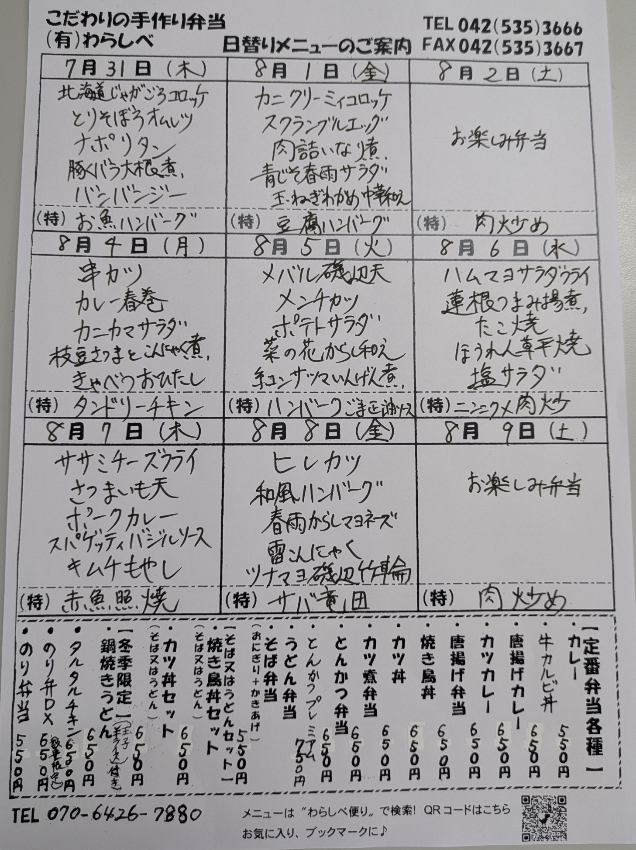 こだわりの手作り弁当
(有)わらしべ
日替りメニューのご案内
TEL 042(535)3666
FAX 042(535)3667
7月31日(木)
北海道じゃがごろコロッケ
とりそぼろオムレツ
ナポリタン
豚バラ大根煮
バンバンジー
(特) お魚ハンバーグ
8月1日(金)
カニクリーミィコロッケ
スクランブルエッグ
肉詰いなり煮
青じそ春雨サラダ
玉ねぎわかめ中華和え
(特) 豆腐ハンバーグ
8月2日(土)
お楽しみ弁当
(特) 肉炒め
8月4日(月)
串カツ
カレー春巻
カニカマサラダ
枝豆さつまとこんにゃく煮
きゃべつおひたし
(特) タンドリーチキン
8月5日(火)
メバル磯辺天
メンチカツ
ポテトサラダ
菜の花からし和え
糸コンサツマいんげん煮
(特) ハンバーグごま醤油ソース
8月6日(水)
ハムマヨサラダフライ
蓮根つまみ揚煮
たこ焼
ほうれん草平焼
塩サラダ
(特) ニンニクメ肉炒
8月7日(木)
ササミチーズフライ
さつまいも天
ポークカレー
スパゲッティバジルソース
キムチもやし
(特) 赤魚照焼
8月8日(金)
ヒレカツ
和風ハンバーグ
春雨からしマヨネーズ
雷こんにゃく
ツナマヨ磯辺竹輪
(特) サバ竜田
8月9日(土)
お楽しみ弁当
(特) 肉炒め
【定番弁当各種】
カレー 550円
牛カルビ丼 650円
・唐揚げカレー 650円
・カツカレー 650円
・唐揚げ弁当 650円
・焼き鳥丼 650円
・カツ丼 650円
・カツ煮弁当 650円
・とんかつ弁当 650円
・とんかつプレミアム 750円
・うどん弁当
・そば弁当 550円
(おにぎり+かきあげ)
【そば又はうどんセット】
・焼き鳥丼セット
(そば又はうどん)
・カツ丼セット 650円
(そば又はうどん)
【冬季限定】
鍋焼きうどん 650円
・タルタルチキン 650円
・のり弁DX 650円
・のり弁当 550円
TEL 070-6426-7880
メニューは"わらしべ便り"で検索! QRコードはこちら
お気に入り、ブックマークに♪